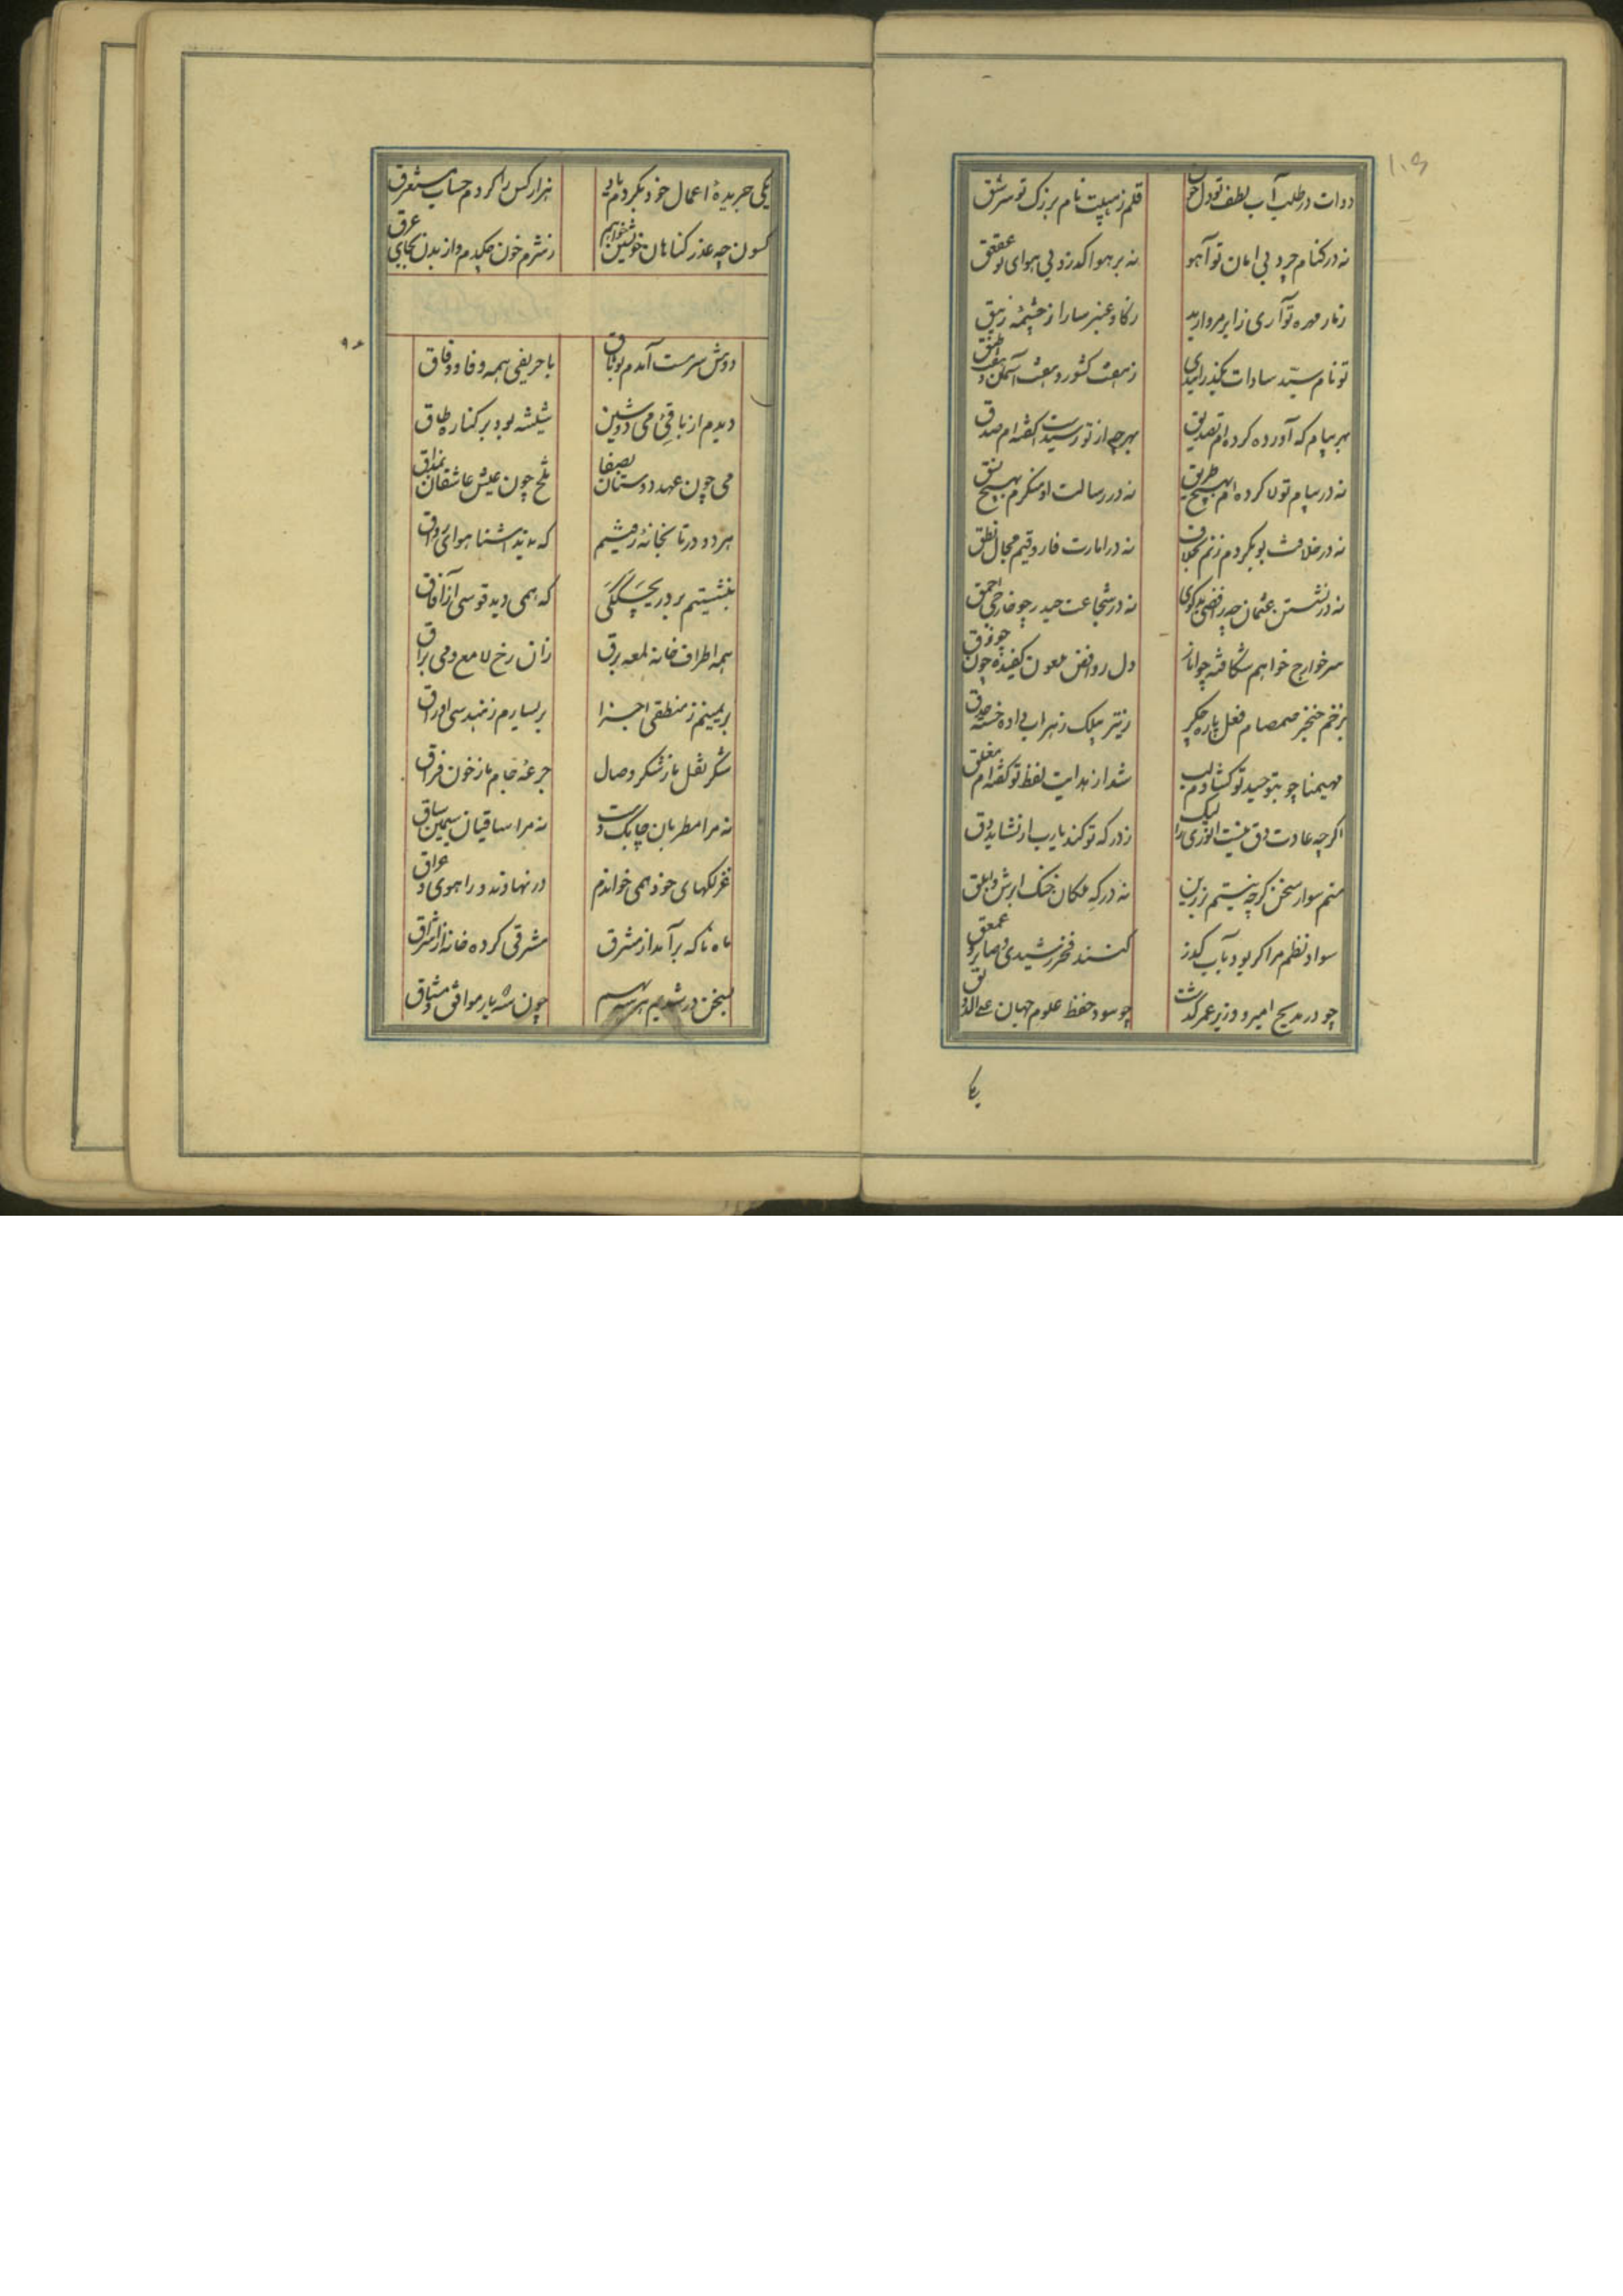 ۱۰۶
دوات در طلب آب لطف تو دل خون
قلم ز هیبت نام بزرک تو سر شق
نه در کنام چرد بی امان تو آهو
نه بر هوا کدرد بی هوای تو عقعق
ز مار مهره تو آری ز ابر مروارید
ز کاو عنبر سارا ز چشمه زیبق
تو نام سید سادات بکذرانیدی
ز هفت کشور و هفت آسمان و هفت طبق
بهر پیام که آورده کرده‌ام تصدیق
بهرچه از تو رسیدست کفته‌ام صدق
نه در پیام تو لا کرده‌ام بهیچ طریق
نه در رسالت او منکرم بهیچ نسق
نه در خلافت بوبکر دم زنم بخلاف
نه در امارت فاروقیم مجال نطق
نه در نشستن عثمان چو رافضی بدکوی
نه در شجاعت حیدر چو خارجی احمق
سر خوارج خواهم شکافته چو انار
دل روافض ملعون کفیده چون جوزق
بزخم خنجر صمصام فعل پاره جکر
ز تیر بیلک زهراب داده خسته حدق
مهیمنا چو بتوحید تو کشادم لب
شد از هدایت لفظ تو کفته‌ام مغلق
اکرچه عادت دق نیست انوری را لیک
ز درکه تو کند یارب ار نشاید دق
منم سوار سخن کرچه نیستم زرین
نه در که ملکان خنک ابرش و ابلق
سواد نظم مرا کر بود بآب کذر
کنند فخر رشیدی و صابر و عمعق
چو در مدیح امیر و وزیر عمر کذشت
چو سود حفظ علوم جهان علی الدق
یکی
یکی جریده اعمال خود نکردم یاد
هزار کس را کردم حساب مستغرق
کنون چه عذر کناهان خویشتن خواهم
ز شرم خون چکدم از بدن بجای عرق
دوش سرمست آمدم بوثاق
با حریفی همه وفا و وفاق
دیدم از باقی می دوشین
شیشه بود بر کناره طاق
می چون عهد دوستان بصفا
تلخ چون عیش عاشقان بمذاق
هر دو در تابخانه رفتیم
که بد آشنا هوای رواق
بنشستیم بر دریچگکی
که همی دید قوسی از آفاق
همه اطراف خانه لمعه برق
زان رخ لامع و می براق
بر یمینم ز منطقی اجزا
بر یسارم ز هندسی اوراق
شکر نقل ما ز شکر وصال
جرعه جام ما ز خون فراق
نه مرا مطربان چابک دست
نه مرا ساقیان سیمین ساق
غزلکهای خود همی خواندم
در نهاوند و راهوی و عراق
ماه ناکه برآمد از مشرق
مشرقی کرده خانه از اشراق
بسخن در شدیم هر سه بهم
چون سه یار موافق و مشتاق